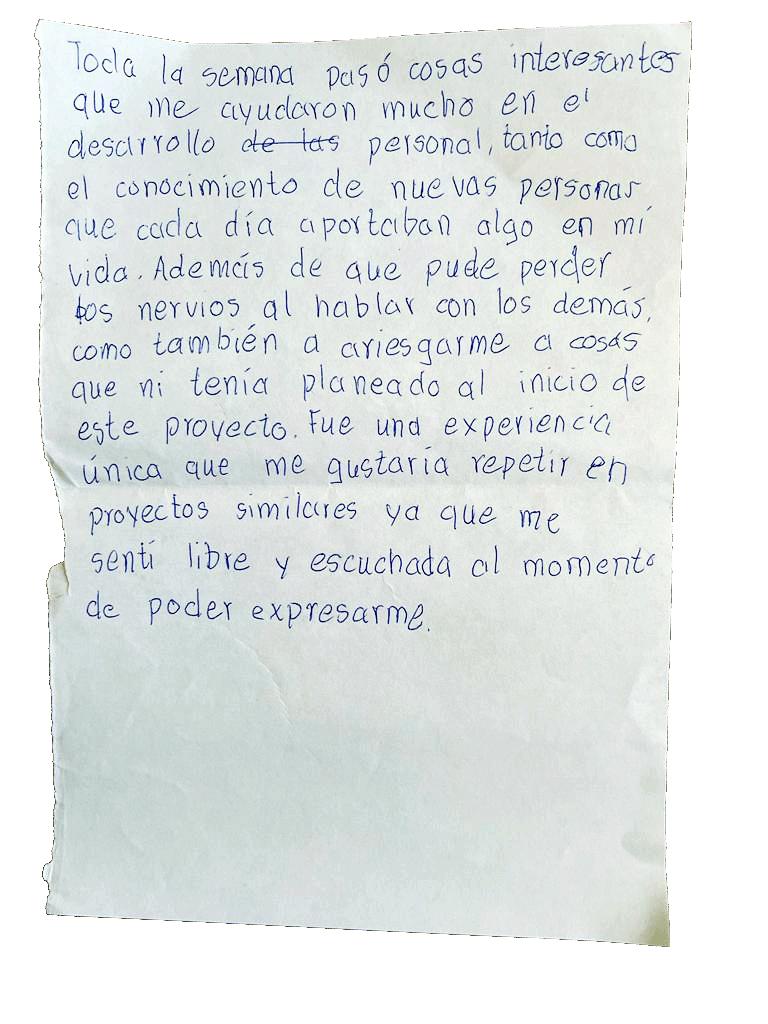 Toda la semana pasó cosas interesantes
que me ayudaron mucho en el
desarrollo de las personal, tanto como
el conocimiento de nuevas personas
que cada día aportaban algo en mi
vida. Además de que pude perder
los nervios al hablar con los demás,
como también a ariesgarme a cosas
que ni tenía planeado al inicio de
este proyecto. Fue una experiencia
única que me gustaría repetir en
proyectos similares ya que me
sentí libre y escuchada al momento
de poder expresarme.